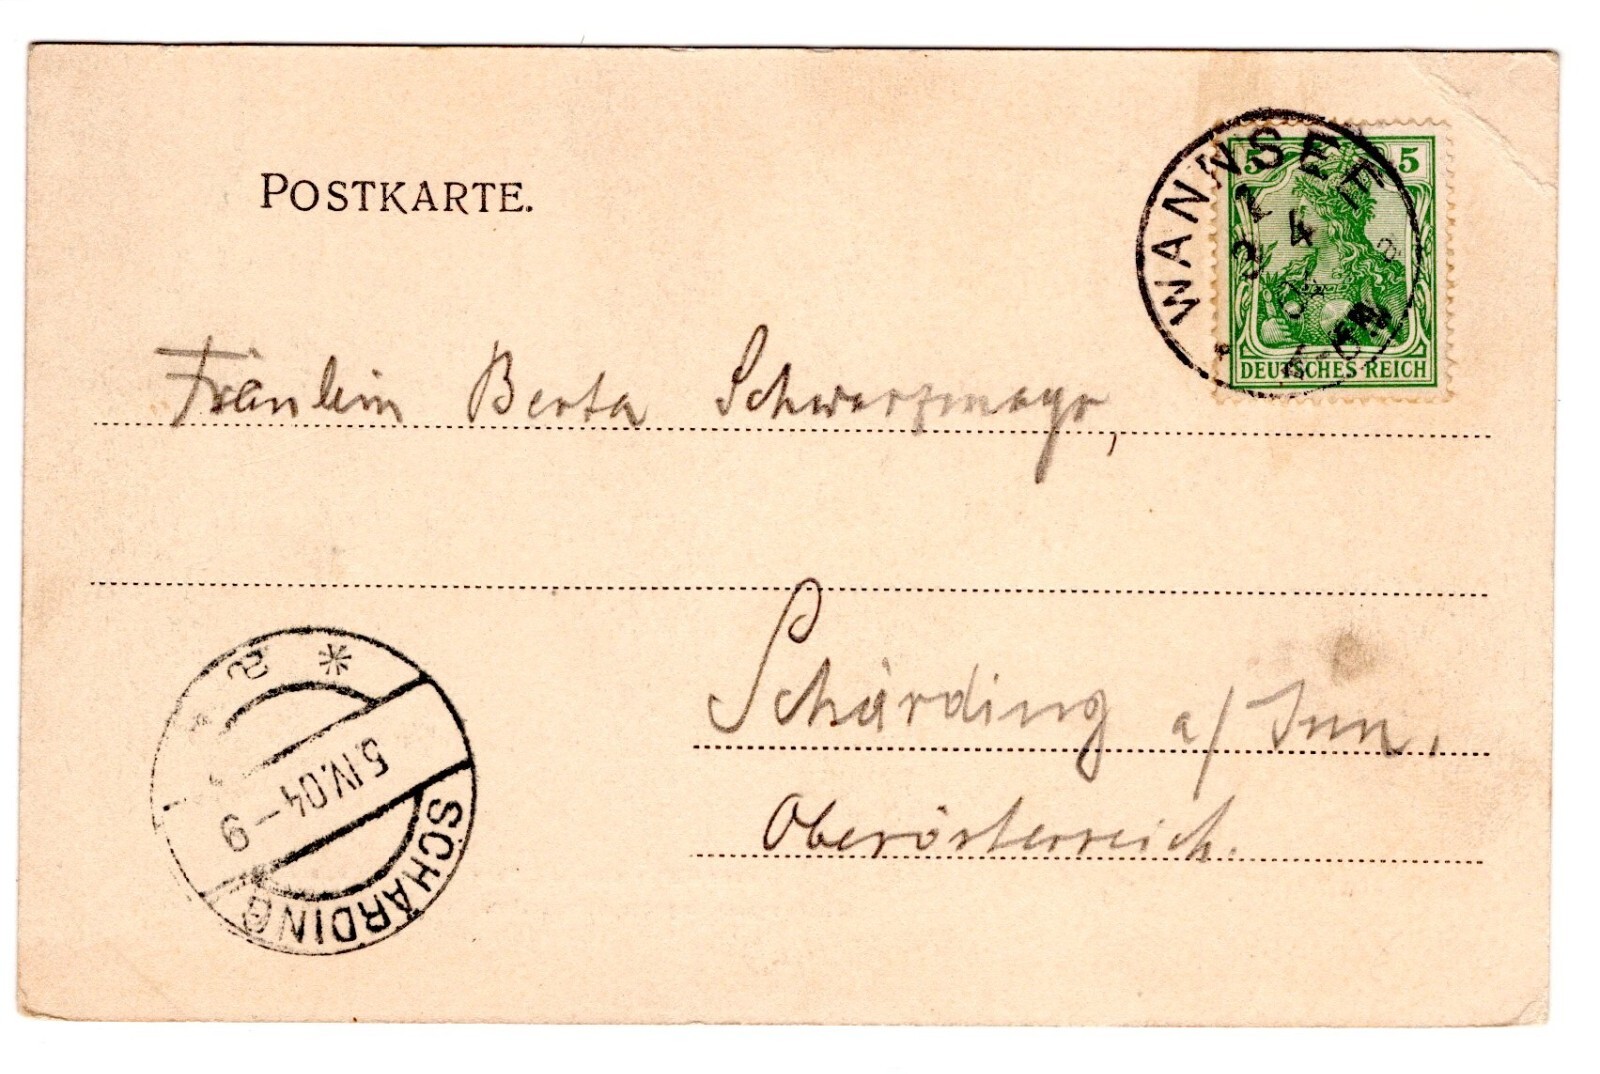 POSTKARTE.
WANNSEE
5 5
4
DEUTSCHES REICH
Fräulein Berta Schwarzmayr,
Schärding a/Inn.
Oberösterreich.
5.IV.04-9
SCHÄRDING